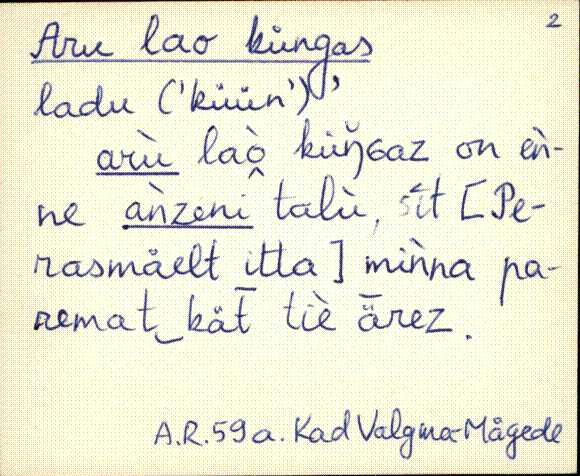 2
Aru lao küngas
ladu ('küün')
arù laò̭ küŋ̌ɢaz on èǹ-
ne àǹzeni talù, sīt [Pe-
rasmåelt itta] miǹna pa-
remat‿kät̄ tiè ǟrez.
A.R. 59 a. Kad Valgma-Mågede